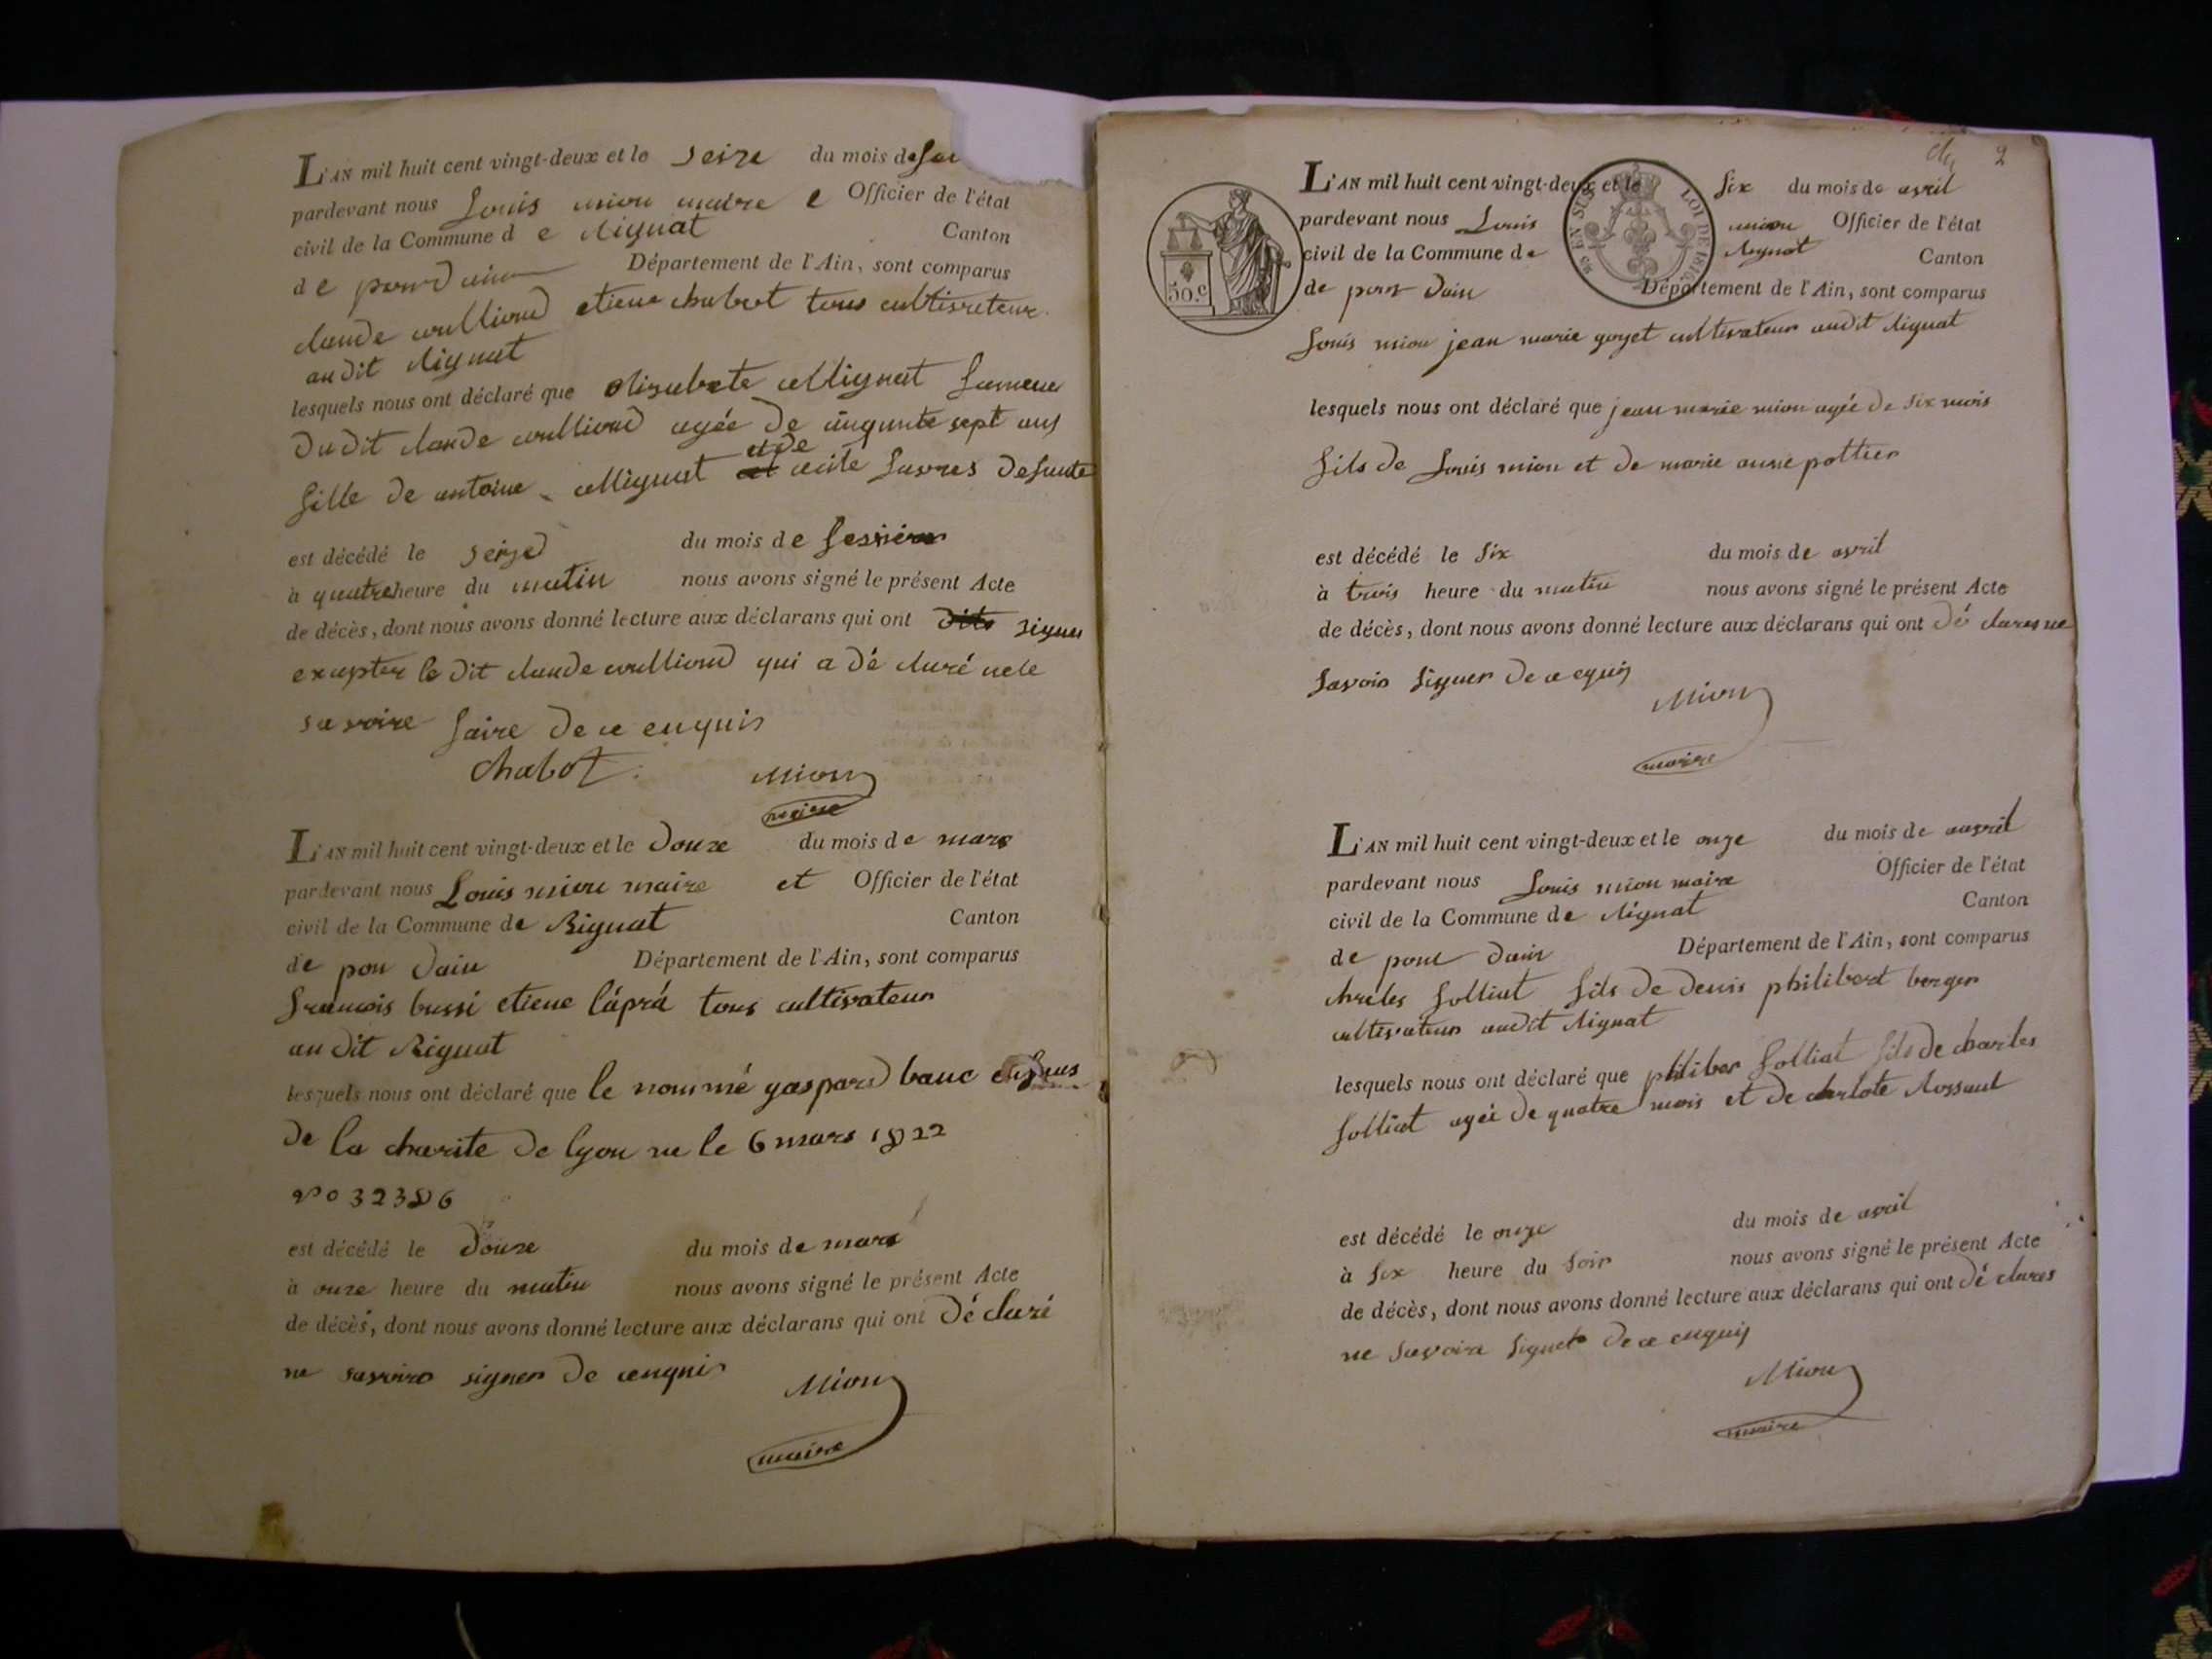 L'AN mil huit cent vingt-deux et le seize du mois de
pardevant nous Louis mion maire e Officier de l'état
civil de la Commune d e Rignat Canton
de pond ain Département de l'Ain, sont comparus
claude etiene chabot tous cultivateur
au dit Rignat
lesquels nous ont déclaré que
du dit claude agée de sept ans
fille de antoine et de cecile favres defunte
est décédé le seize du mois de fevrier
à quatre heure du matin nous avons signé le présent Acte
de décès, dont nous avons donné lecture aux déclarans qui ont dits signer
excepter le dit claude qui a dé claré ne le
savoire faire de ce enquis
chabot. Mion
maire
L'AN mil huit cent vingt-deux et le douze du mois de mars
pardevant nous Louis mion maire et Officier de l'état
civil de la Commune de Rignat Canton
de pon dain Département de l'Ain, sont comparus
francois bussi etiene láprá tous cultivateur
au dit Rignat
lesquels nous ont déclaré que le nommé gaspard banc
de la charite de lyon ne le 6 mars 1822
no 32386
est décédé le douze du mois de mars
à onze heure du matin nous avons signé le présent Acte
de décès, dont nous avons donné lecture aux déclarans qui ont dé claré
ne savoire signer de ce enquis
Mion
maire
2
L'AN mil huit cent vingt-deux et le six du mois de avril
pardevant nous Louis mion Officier de l'état
civil de la Commune de Rignat Canton
de pont dain Département de l'Ain, sont comparus
50.c
EN SUS LOI DE 1816
Louis mion jean marie goyet cultivateur audit Rignat
lesquels nous ont déclaré que jean marie mion agée de six mois
fils de Louis mion et de marie anne pottier
est décédé le six du mois de avril
à trois heure du matin nous avons signé le présent Acte
de décès, dont nous avons donné lecture aux déclarans qui ont dé clares ne
savoir signer de ce equis
Mion
maire
L'AN mil huit cent vingt-deux et le onze du mois de avril
pardevant nous Louis mion maire Officier de l'état
civil de la Commune de Rignat Canton
de pont dain Département de l'Ain, sont comparus
charles folliat fils de denis philibert berger
cultivateur audit Rignat
lesquels nous ont déclaré que philiber folliat fils de charles
folliat agée de quatre mois et de charlote
est décédé le onze du mois de avril
à six heure du soir nous avons signé le présent Acte
de décès, dont nous avons donné lecture aux déclarans qui ont dé clares
ne savoire signer de ce enquis
Mion
maire